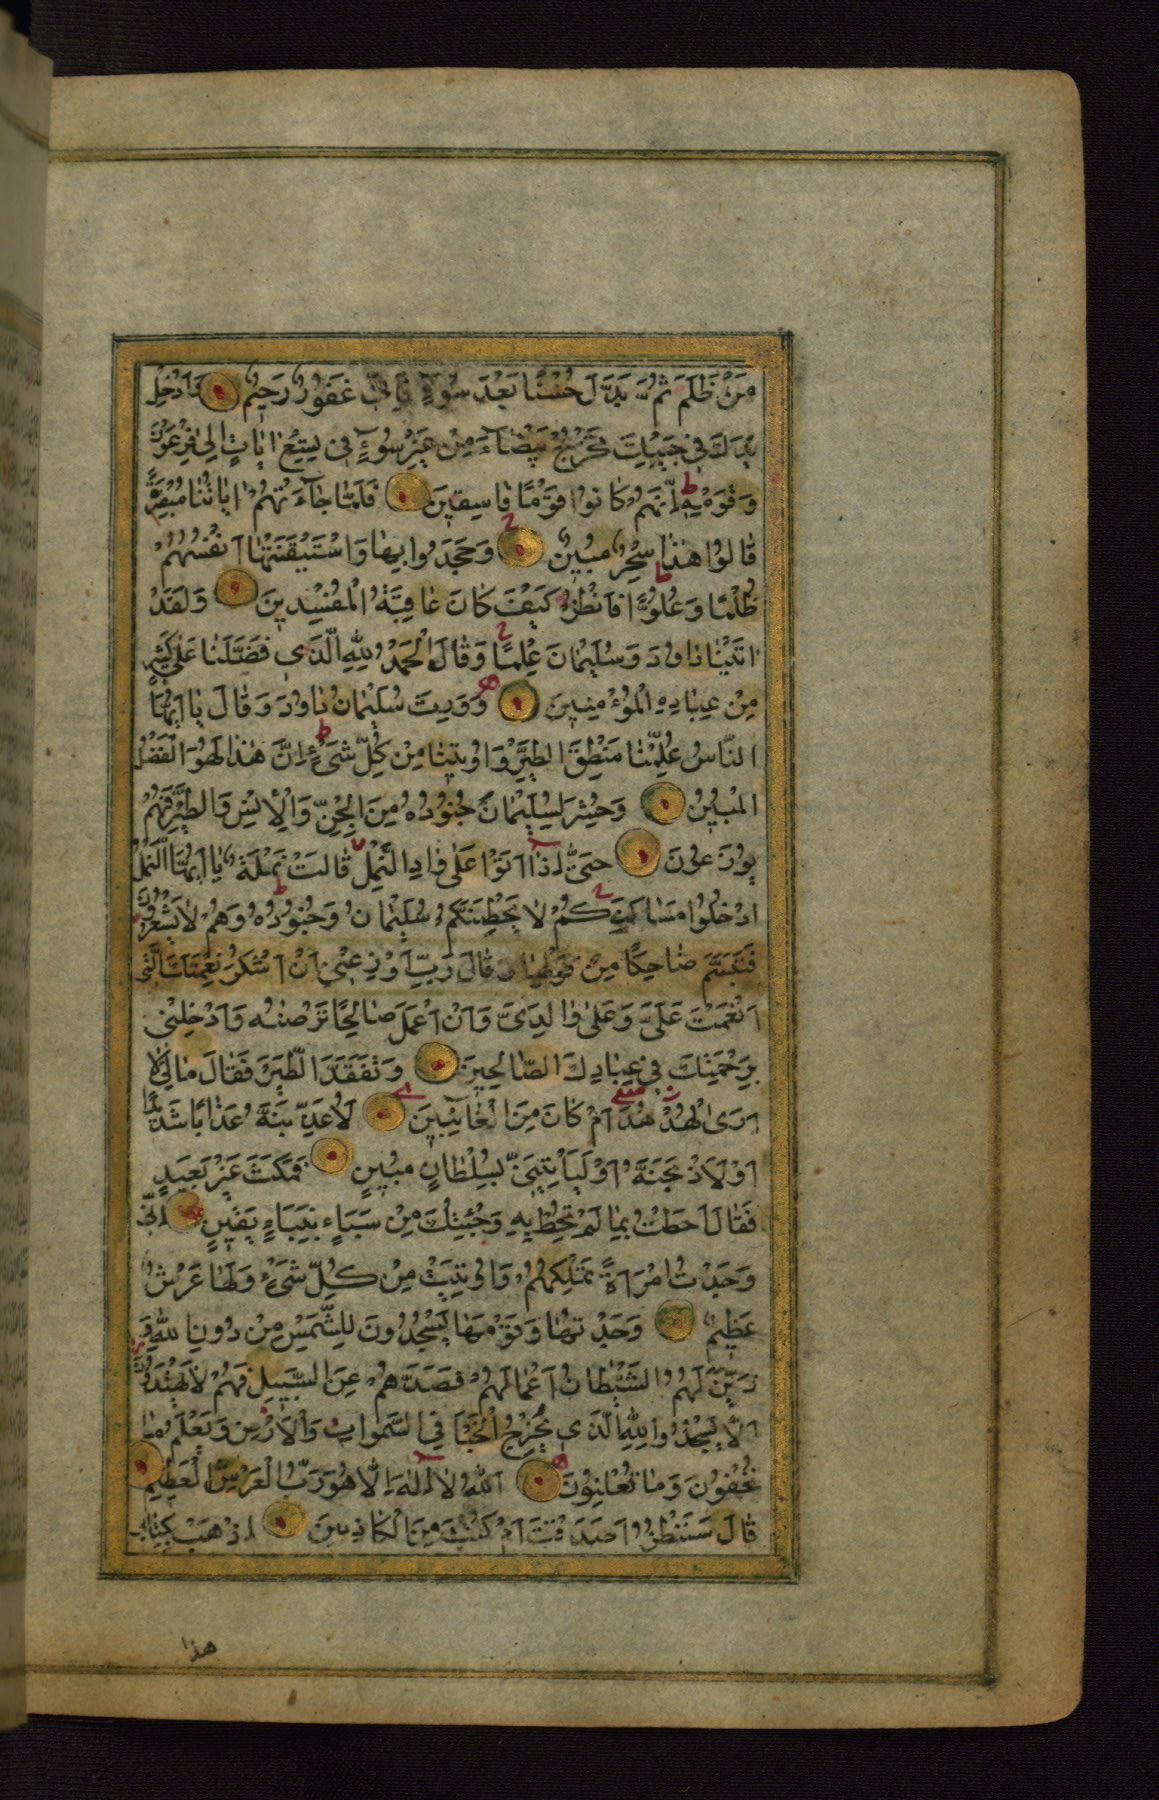 مَنْ ظَلَمَ ثُمَّ بَدَّلَ حُسْنًا بَعْدَ سُوۤءٍ فَاِنّٖى غَفُورٌ رَحٖيمٌ وَاَدْخِلْ
يَدَكَ فٖى جَيْبِكَ تَخْرُجْ بَيْضَاۤءَ مِنْ غَيْرِ سُوۤءٍ فٖى تِسْعِ اٰيَاتٍ اِلٰى فِرْعَوْنَ
وَقَوْمِهٖ اِنَّهُمْ كَانُوا قَوْمًا فَاسِقٖينَ فَلَمَّا جَاۤءَتْهُمْ اٰيَاتُنَا مُبْصِرَةً
قَالُوا هٰذَا سِحْرٌ مُبٖينٌ وَجَحَدُوا بِهَا وَاسْتَيْقَنَتْهَاۤ اَنْفُسُهُمْ
ظُلْمًا وَعُلُوًّا فَانْظُرْ كَيْفَ كَانَ عَاقِبَةُ الْمُفْسِدٖينَ وَلَقَدْ
اٰتَيْنَا دَاوُدَ وَسُلَيْمَانَ عِلْمًا وَقَالَا الْحَمْدُ لِلّٰهِ الَّذٖى فَضَّلَنَا عَلٰى كَثٖيرٍ
مِنْ عِبَادِهِ الْمُؤْمِنٖينَ وَوَرِثَ سُلَيْمَانُ دَاوُدَ وَقَالَ يَاۤ اَيُّهَا
النَّاسُ عُلِّمْنَا مَنْطِقَ الطَّيْرِ وَاُوتٖينَا مِنْ كُلِّ شَىْءٍ اِنَّ هٰذَا لَهُوَ الْفَضْلُ
الْمُبٖينُ وَحُشِرَ لِسُلَيْمَانَ جُنُودُهُ مِنَ الْجِنِّ وَالْاِنْسِ وَالطَّيْرِ فَهُمْ
يُوزَعُونَ حَتّٰىۤ اِذَاۤ اَتَوْا عَلٰى وَادِ النَّمْلِ قَالَتْ نَمْلَةٌ يَاۤ اَيُّهَا النَّمْلُ
ادْخُلُوا مَسَاكِنَكُمْ لَا يَحْطِمَنَّكُمْ سُلَيْمَانُ وَجُنُودُهُ وَهُمْ لَا يَشْعُرُونَ
فَتَبَسَّمَ ضَاحِكًا مِنْ قَوْلِهَا وَقَالَ رَبِّ اَوْزِعْنٖىۤ اَنْ اَشْكُرَ نِعْمَتَكَ الَّتٖى
اَنْعَمْتَ عَلَىَّ وَعَلٰى وَالِدَىَّ وَاَنْ اَعْمَلَ صَالِحًا تَرْضٰيهُ وَاَدْخِلْنٖى
بِرَحْمَتِكَ فٖى عِبَادِكَ الصَّالِحٖينَ وَتَفَقَّدَ الطَّيْرَ فَقَالَ مَا لِىَ لَاۤ
اَرَى الْهُدْهُدَ اَمْ كَانَ مِنَ الْغَاۤئِبٖينَ لَاُعَذِّبَنَّهُ عَذَابًا شَدٖيدًا
اَوْ لَاَذْبَحَنَّهُ اَوْ لَيَأْتِيَنّٖى بِسُلْطَانٍ مُبٖينٍ فَمَكَثَ غَيْرَ بَعٖيدٍ
فَقَالَ اَحَطْتُ بِمَا لَمْ تُحِطْ بِهٖ وَجِئْتُكَ مِنْ سَبَاءٍ بِنَبَاءٍ يَقٖينٍ اِنّٖى
وَجَدْتُ امْرَاَةً تَمْلِكُهُمْ وَاُوتِيَتْ مِنْ كُلِّ شَىْءٍ وَلَهَا عَرْشٌ
عَظٖيمٌ وَجَدْتُهَا وَقَوْمَهَا يَسْجُدُونَ لِلشَّمْسِ مِنْ دُونِ اللّٰهِ وَ
زَيَّنَ لَهُمُ الشَّيْطَانُ اَعْمَالَهُمْ فَصَدَّهُمْ عَنِ السَّبٖيلِ فَهُمْ لَا يَهْتَدُونَ
اَلَّا يَسْجُدُوا لِلّٰهِ الَّذٖى يُخْرِجُ الْخَبْاَ فِى السَّمٰوَاتِ وَالْاَرْضِ وَيَعْلَمُ مَا
تُخْفُونَ وَمَا تُعْلِنُونَ اَللّٰهُ لَاۤ اِلٰهَ اِلَّا هُوَ رَبُّ الْعَرْشِ الْعَظٖيمِ
قَالَ سَنَنْظُرُ اَصَدَقْتَ اَمْ كُنْتَ مِنَ الْكَاذِبٖينَ اِذْهَبْ بِكِتَابٖى
هذا